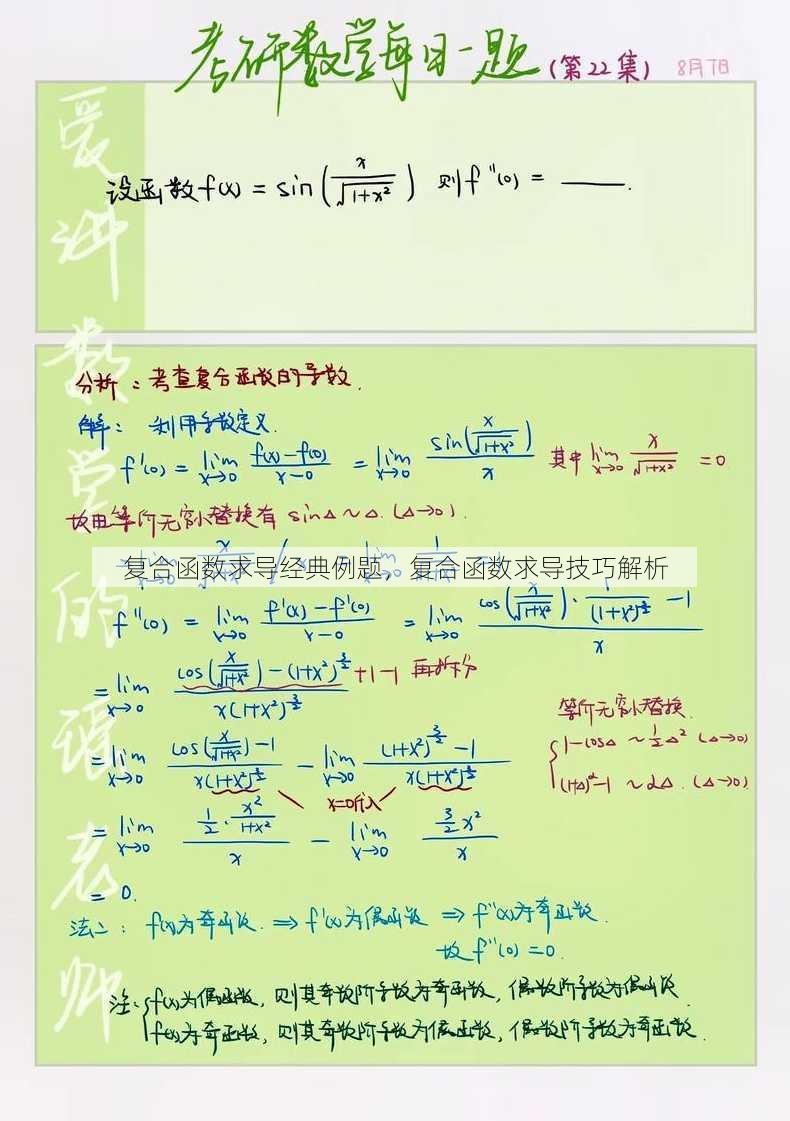 考研数学每日一题(第22集) 8月7日
设函数f(x) = sin(x/√(1+x²)) 则f''(0) = ____.
分析：考查复合函数的导数.
解： 利用导数定义.
f'(0) = lim x→0 (f(x)-f(0))/(x-0) = lim x→0 sin(x/√(1+x²))/x 其中 lim x→0 x/√(1+x²) = 0
故由等价无穷小替换有 sinΔ ~ Δ. (Δ→0).
复合函数求导经典例题，复合函数求导技巧解析
f''(0) = lim x→0 (f'(x)-f'(0))/(x-0) = lim x→0 (cos(x/√(1+x²))·1/(1+x²)^(3/2) -1)/x
= lim x→0 (cos(x/√(1+x²))-(1+x²)^(3/2))/(x(1+x²)^(3/2)) +1-1 再拆分
= lim x→0 (cos(x/√(1+x²))-1)/(x(1+x²)^(3/2)) - lim x→0 ((1+x²)^(3/2)-1)/(x(1+x²)^(3/2))
x=0代入
等价无穷小替换.
1-cosΔ ~ 1/2Δ² (Δ→0)
(1+Δ)^α-1 ~ αΔ. (Δ→0)
= lim x→0 (1/2·x²/(1+x²))/x - lim x→0 (3/2 x²)/x
= 0.
法二： f(x)为奇函数. ⇒ f'(x)为偶函数 ⇒ f''(x)为奇函数.
故 f''(0) = 0.
注：f(x)为偶函数, 则其奇数阶导数为奇函数, 偶数阶导数为偶函数
f(x)为奇函数, 则其奇数阶导数为偶函数, 偶数阶导数为奇函数.
爱讲数学的
老师